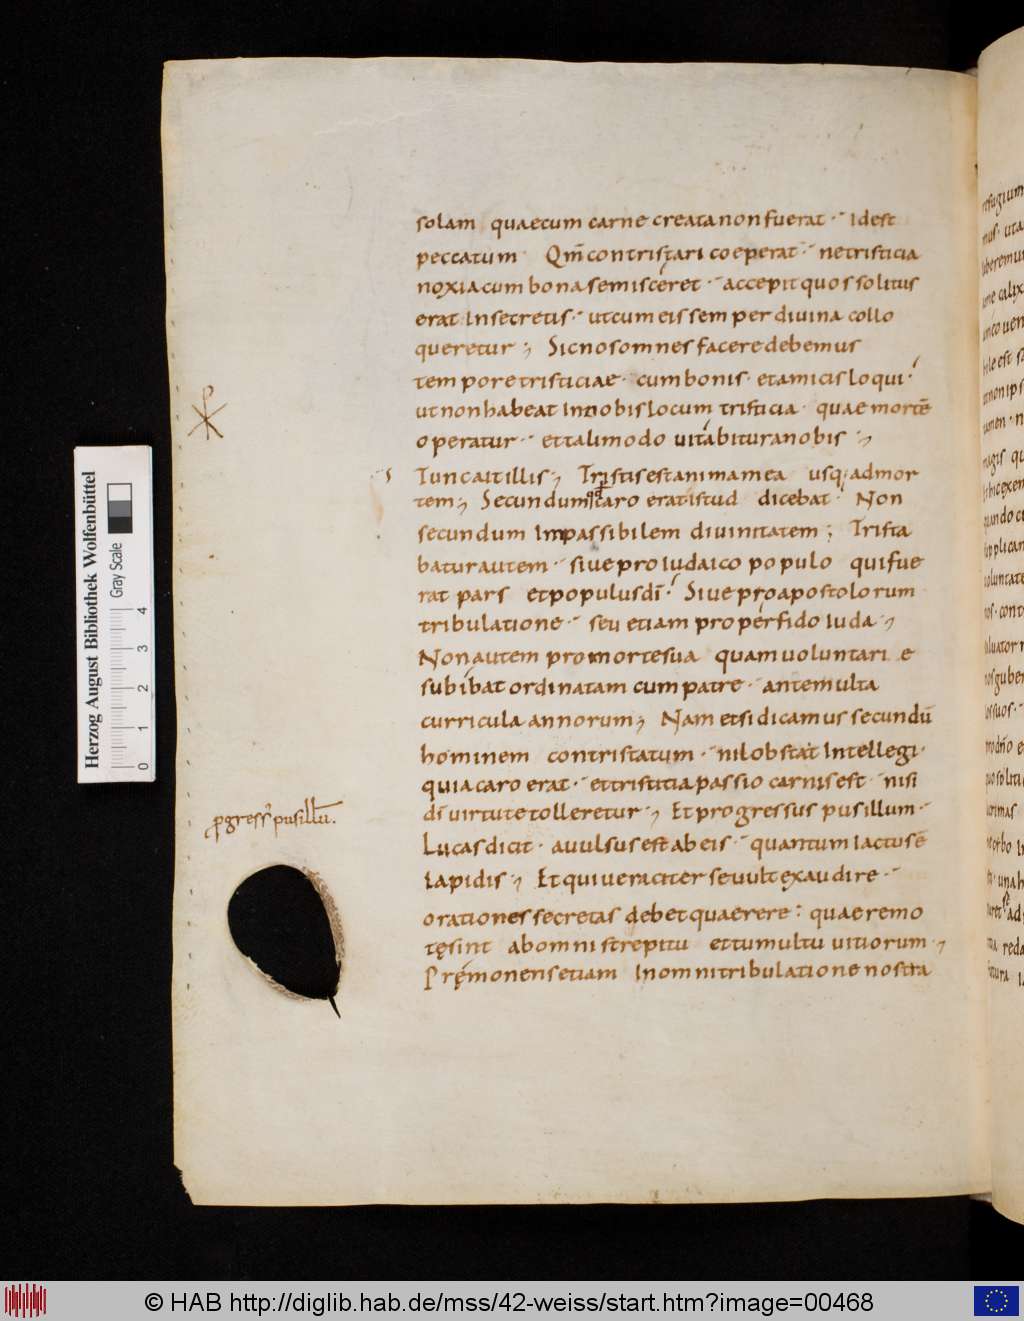 solam quae cum carne creata non fuerat· idest
peccatum Qm̄ contristari coeperat· ne tristicia
noxia cum bona se misceret· accepit quos solitus
erat In secretis· ut cum eis semper divina collo
queretur; Sic nos omnes facere debemus
tempore tristiciae· cum bonis· et amicis loqui·
ut non habeat In nobis locum tristicia· quae mortē
operatur· et tali modo uitabitur a nobis;
Tunc ait illis; Tristis est anima mea usq; ad mor
tem; Secundum qd caro erat istud dicebat· Non
secundum Impassibilem divinitatem; Trista
batur autem· siue pro iudaico populo qui fue
rat pars et populus dī· Siue pro apostolorum
tribulatione· seu etiam pro perfido iuda;
Non autem pro morte sua quam uoluntarie
subibat ordinatam cum patre· ante multa
curricula annorum; Nam etsi dicamus secundū
hominem contristatum· nil obstat Intellegi·
quia caro erat· et tristitia passio carnis est· nisi
dī virtute tolleretur; Et progressus pusillum·
Lucas dicit· avulsus est ab eis· quantum Iactus ē
lapidis; Et qui ueraciter se uult exaudire·
orationes secretas debet quaerere: quae remo
tę sint ab omni strepitu et tumultu uitiorum;
Pręmonens etiam In omni tribulatione nostra
pgress' pusillū.
Herzog August Bibliothek Wolfenbüttel
Gray Scale
0 1 2 3 4
© HAB http://diglib.hab.de/mss/42-weiss/start.htm?image=00468